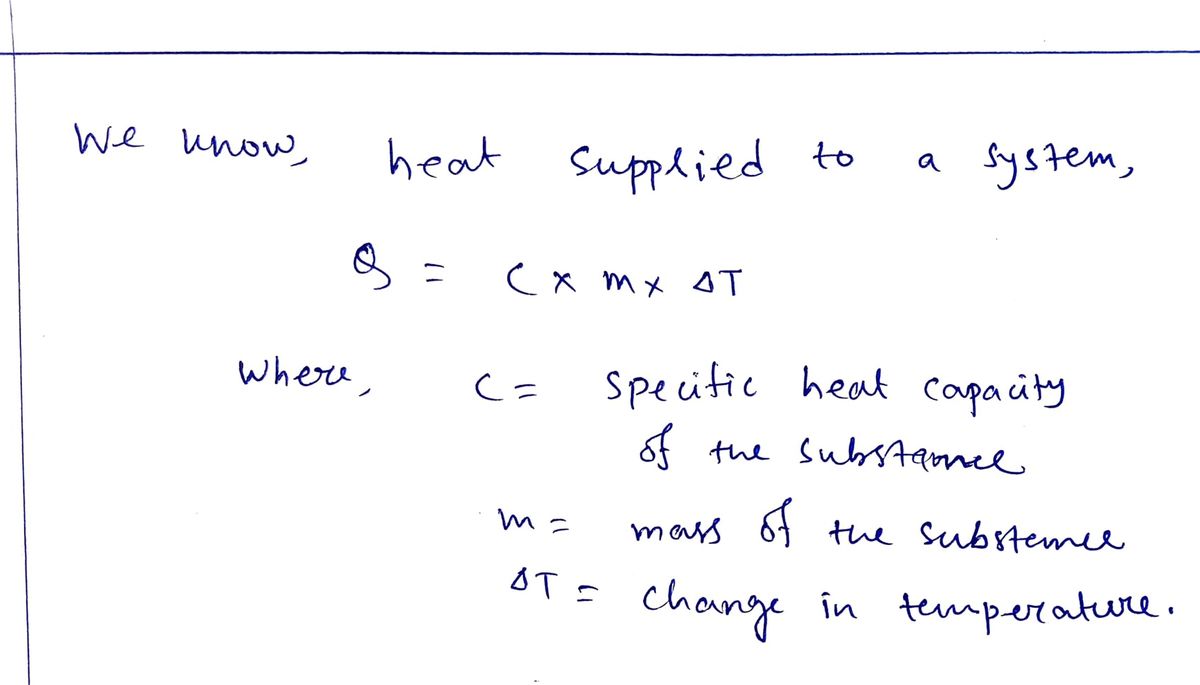 We know, heat supplied to a system,
Q = C x m x ΔT
Where, C = Specific heat capacity
of the substance
m = mass of the substance
ΔT = change in temperature.